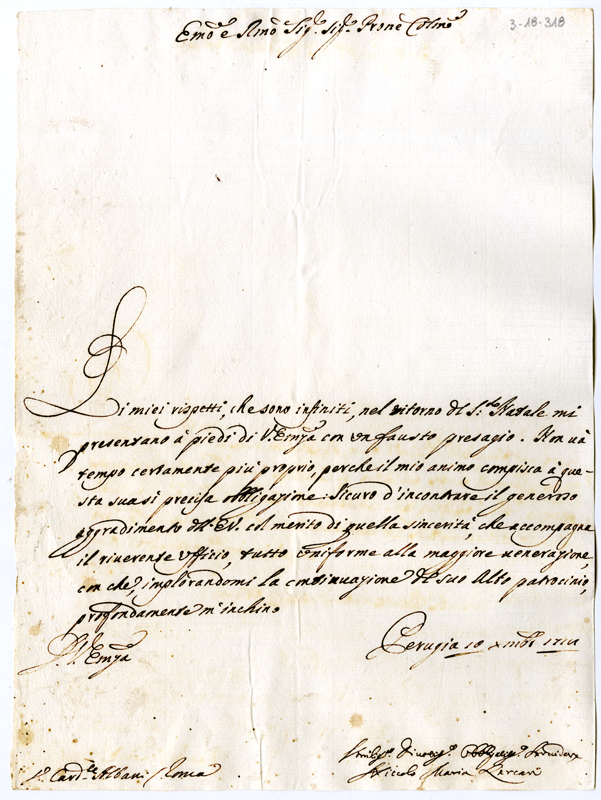 3-18-318
Emo e Rmo Sig.r Sig.r Prone Colmo
Li miei rispetti, che sono infiniti, nel ritorno del S.to Natale mi
presentano à piedi di V. Emza con un fausto presagio. Non và
tempo certamente più proprio, perche il mio animo compisca à que-
sta sua sì precisa obbligazione. Sicuro d'incontrare il generoso
aggradimento dell'E.V. col merito di quella sincerità, che accompagna
il riverente ufficio, tutto uniforme alla maggiore venerazione,
con che, implorandomi la continuazione del suo Alto patrocinio,
profondamente m'inchino
D. V. Emza
Perugia 10 Xmbre
Sr. Card.le Albani Roma
Umiliss.o Divotiss.o Obbligatiss.o Servidore
Niccolò Maria